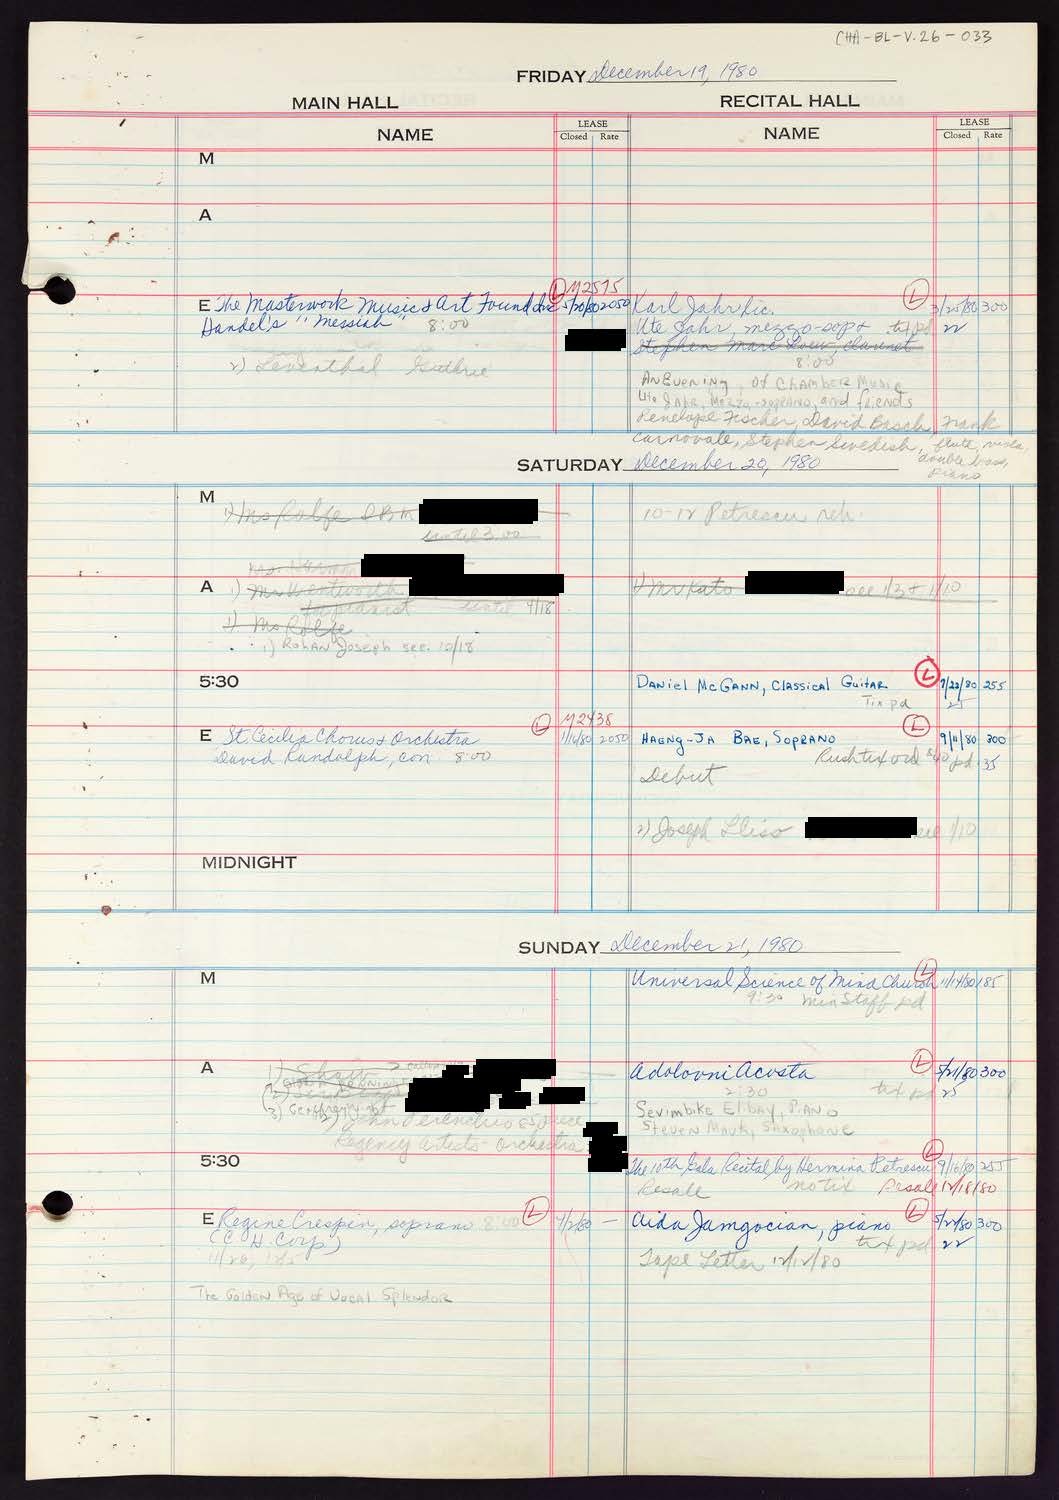 CHA-BL-V.26-033
FRIDAY December 19, 1980
MAIN HALL
RECITAL HALL
NAME
LEASE
Closed Rate
NAME
LEASE
Closed Rate
M
A
E The Masterwork Music & Art Found Inc
L M2575
5/20/80 2050
Handel's "Messiah" 8:00
2) Leventhal Guthrie
Karl Jahr Lic.
L
3/25/80 300
Ute Jahr, mezzo-sop+ tix pd 22
Stephen Marc Loew, clarinet
8:00
An Evening of Chamber Music
Ute Jahr, Mezzo-soprano, and friends
Penelope Fischer, David Basch, Frank
Carnovale, Stephen Swedish, flute, viola,
double bass,
piano
SATURDAY December 20, 1980
M
1) Ms Rolfe IBM
until 3:00
10-12 Petrescu reh.
A
Ms. Harmon
1) Mr Wentworth
for pianist until 9/18
2) Ms Rolfe
1) Rohan Joseph see. 12/18
1) Mr Kato see 1/3 + 1/10
5:30
Daniel McGann, Classical Guitar
L
7/22/80 255
Tix pd 25
E St. Cecilia Chorus & Orchestra
L M2438
1/16/80 2050
David Randolph, con. 8:00
Haeng-Ja Bae, Soprano
L
9/11/80 300
Rush tix ord $40 pd. 35
Debut
2) Joseph Lliso see 1/10
MIDNIGHT
SUNDAY December 21, 1980
M
Universal Science of Mind Church
L
11/14/80 185
9:30 Min Staff pd
A
1) Shaw
3)
2) John Perenchio & Spruce
Regency Artists - Orchestra
Adolovni Acosta
L
5/21/80 300
2:30 tix pd 25
Sevimbike Elibay, Piano
Steven Mauk, Saxophone
5:30
The 10th Gala Recital by Hermina Petrescu
L
9/16/80 255
Resale no tix Resale 12/18/80
E Regine Crespin, soprano 8:00
L
7/2/80 —
(C.H. Corp)
The Golden Age of Vocal Splendor
Aida Jamgocian, piano
L
5/22/80 300
tix pd 22
Tape Letter 12/12/80